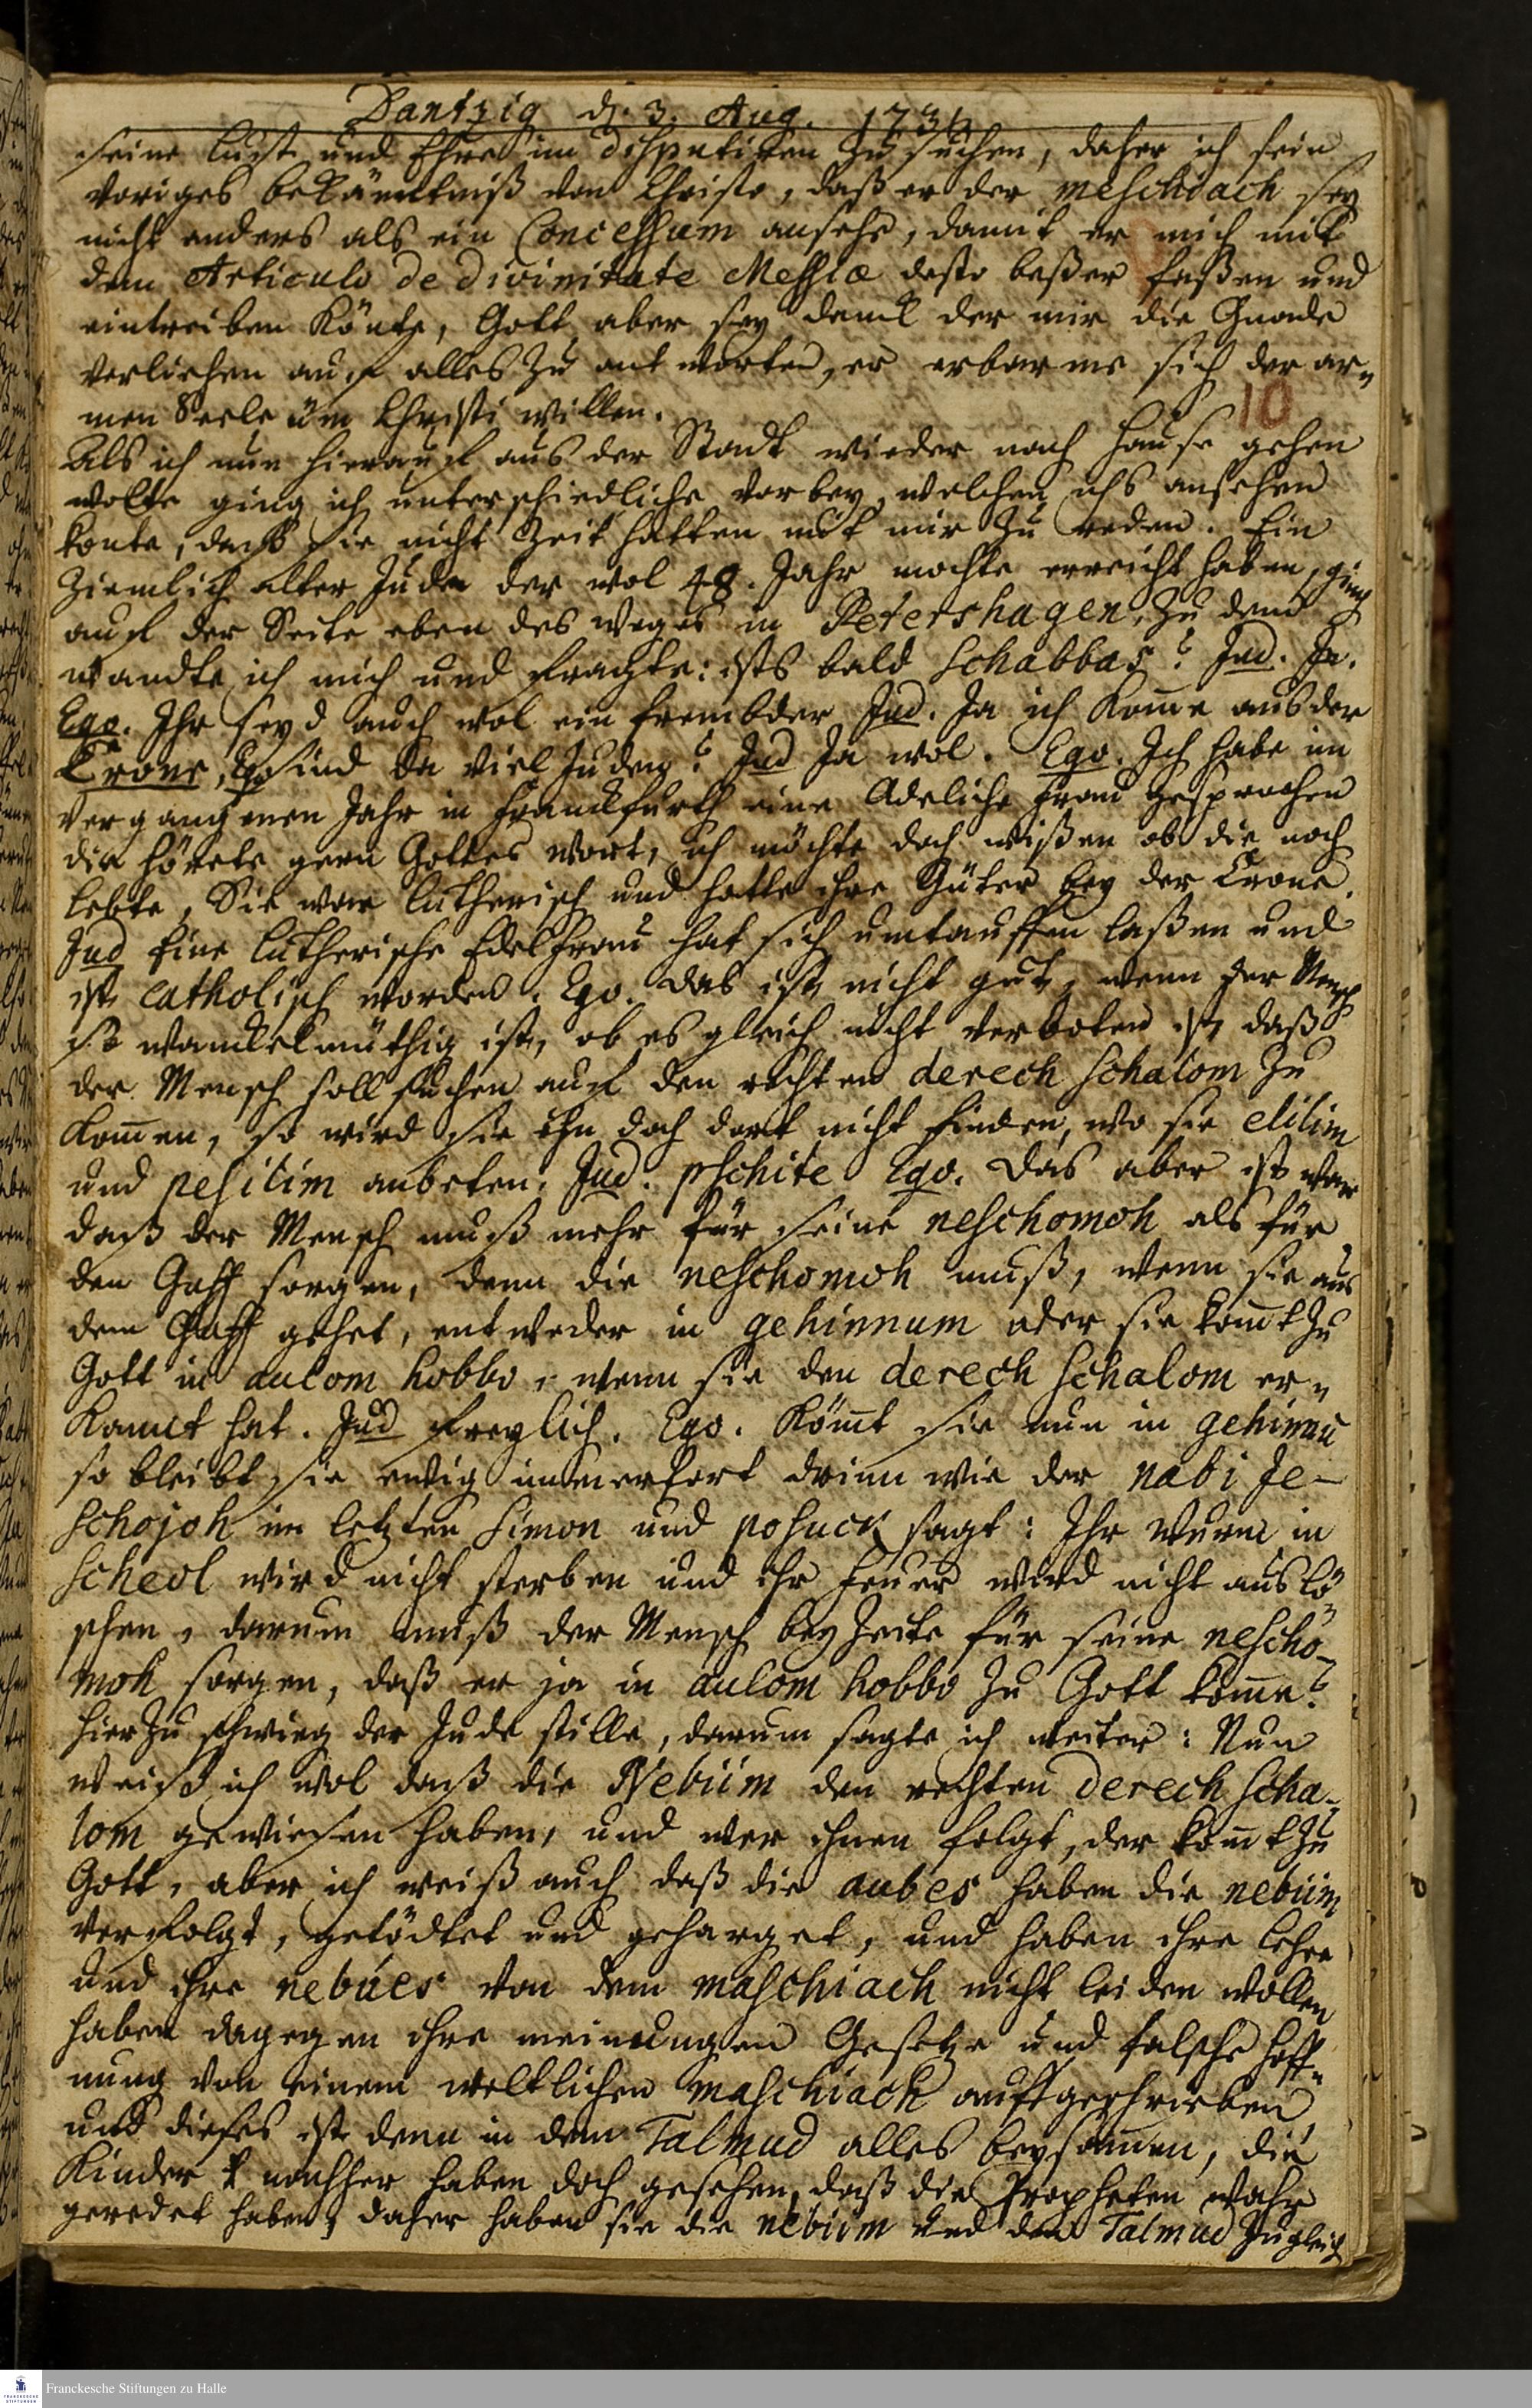 Dantzig d. 3. Aug. 1731
seine Lust und Ehre im disputiren zu suchen, daher ich sein
voriges bekänntniß von Christo, daß er der meschiach sey
nicht anders als ein Concessum ansehe, damit er mich mit
dem Articulo de divinitate Messiæ desto beßer faßen und
eintreiben könte, Gott aber sey danck der mir die Gnade
verliehen auf alles zu antworten, er erbarme sich der ar¬
men Seele üm Christi willen.
10
Als ich nun hierauf aus der Stadt wieder nach Hause gehen
wolte ging ich unterschiedliche vorbey, welchen ichs ansehen
konte, daß sie nicht Zeit hatten mit mir zu reden. Ein
ziemlich alter Jude der wol 48. Jahr mochte erreicht haben, ging
auf der Seite eben des weges in Petershagen, zu dem
wandte ich mich und fragte: ists bald schabbas? Jud. Ja.
Ego. Ihr seyd auch wol ein frembder Jud. Ja ich kom̄e aus der
Crone, Ego sind da viel Juden? Jud Ja wol. Ego. Ich habe im
vergangenen Jahr in Franckfurth eine Adeliche Frau gesprochen
die hörete gern Gottes wort, ich möchte doch wißen ob die noch
lebte, Sie war lutherisch und hatte ihre Güter bey der Crone.
Jud Eine lutherische Edelfrau hat sich umtauffen laßen und
ist catholisch worden. Ego. das ist nicht gut, wenn der Mensch
so wanckelmüthig ist, ob es gleich nicht verboten ist, daß
der Mensch soll suchen auf den rechten derech schalom zu
kom̄en, so wird sie ihn doch dort nicht finden, wo sie elilim
und pesilim anbeten. Jud. pschite Ego. Das aber ist war
daß der Mensch muß mehr für seine neschomoh als für
den Guff sorgen, denn die neschomoh muß, wenn sie aus
dem Guff gehet, entweder in gehinnum oder sie kom̄t zu
Gott in aulom hobbo, wenn sie den derech schalom er¬
kannt hat. Jud freylich. Ego. Köm̄t sie nun in gehinnū
so bleibt sie ewig immerfort drinn wie der nabi Je-
schojoh im letzten simon und posuck sagt: Ihr Wurm in
scheol wird nicht sterben und ihr Feuer wird nicht auslö¬
schen, darum muß der Mensch bey Zeite für seine nescho-
moh sorgen, daß er ja in aulom hobbo zu Gott kom̄e?
hierzu schwieg der Jude stille, darum sagte ich weiter: Nun
weiß ich wol daß die Nebiim den rechten derech scha-
lom gewiesen haben, und wer ihnen folgt, der kom̄t zu
Gott, aber ich weiß auch daß die aubes haben die nebiim
verfolgt, getödtet und geharget, und haben ihre Lehre
und ihre nebúes von dem maschiach nicht leiden wollen
haben dagegen ihre meinungen Gesetze und falsche Hoff¬
nung von einem weltlichen maschiach aufgeschrieben
und dieses ist denn in dem Talmud alles beysam̄en, die
Kinder nachher haben doch gesehen, daß die Propheten wahr
geredet haben, daher haben sie die nebiim und den Talmud zugleich
Franckesche Stiftungen zu Halle